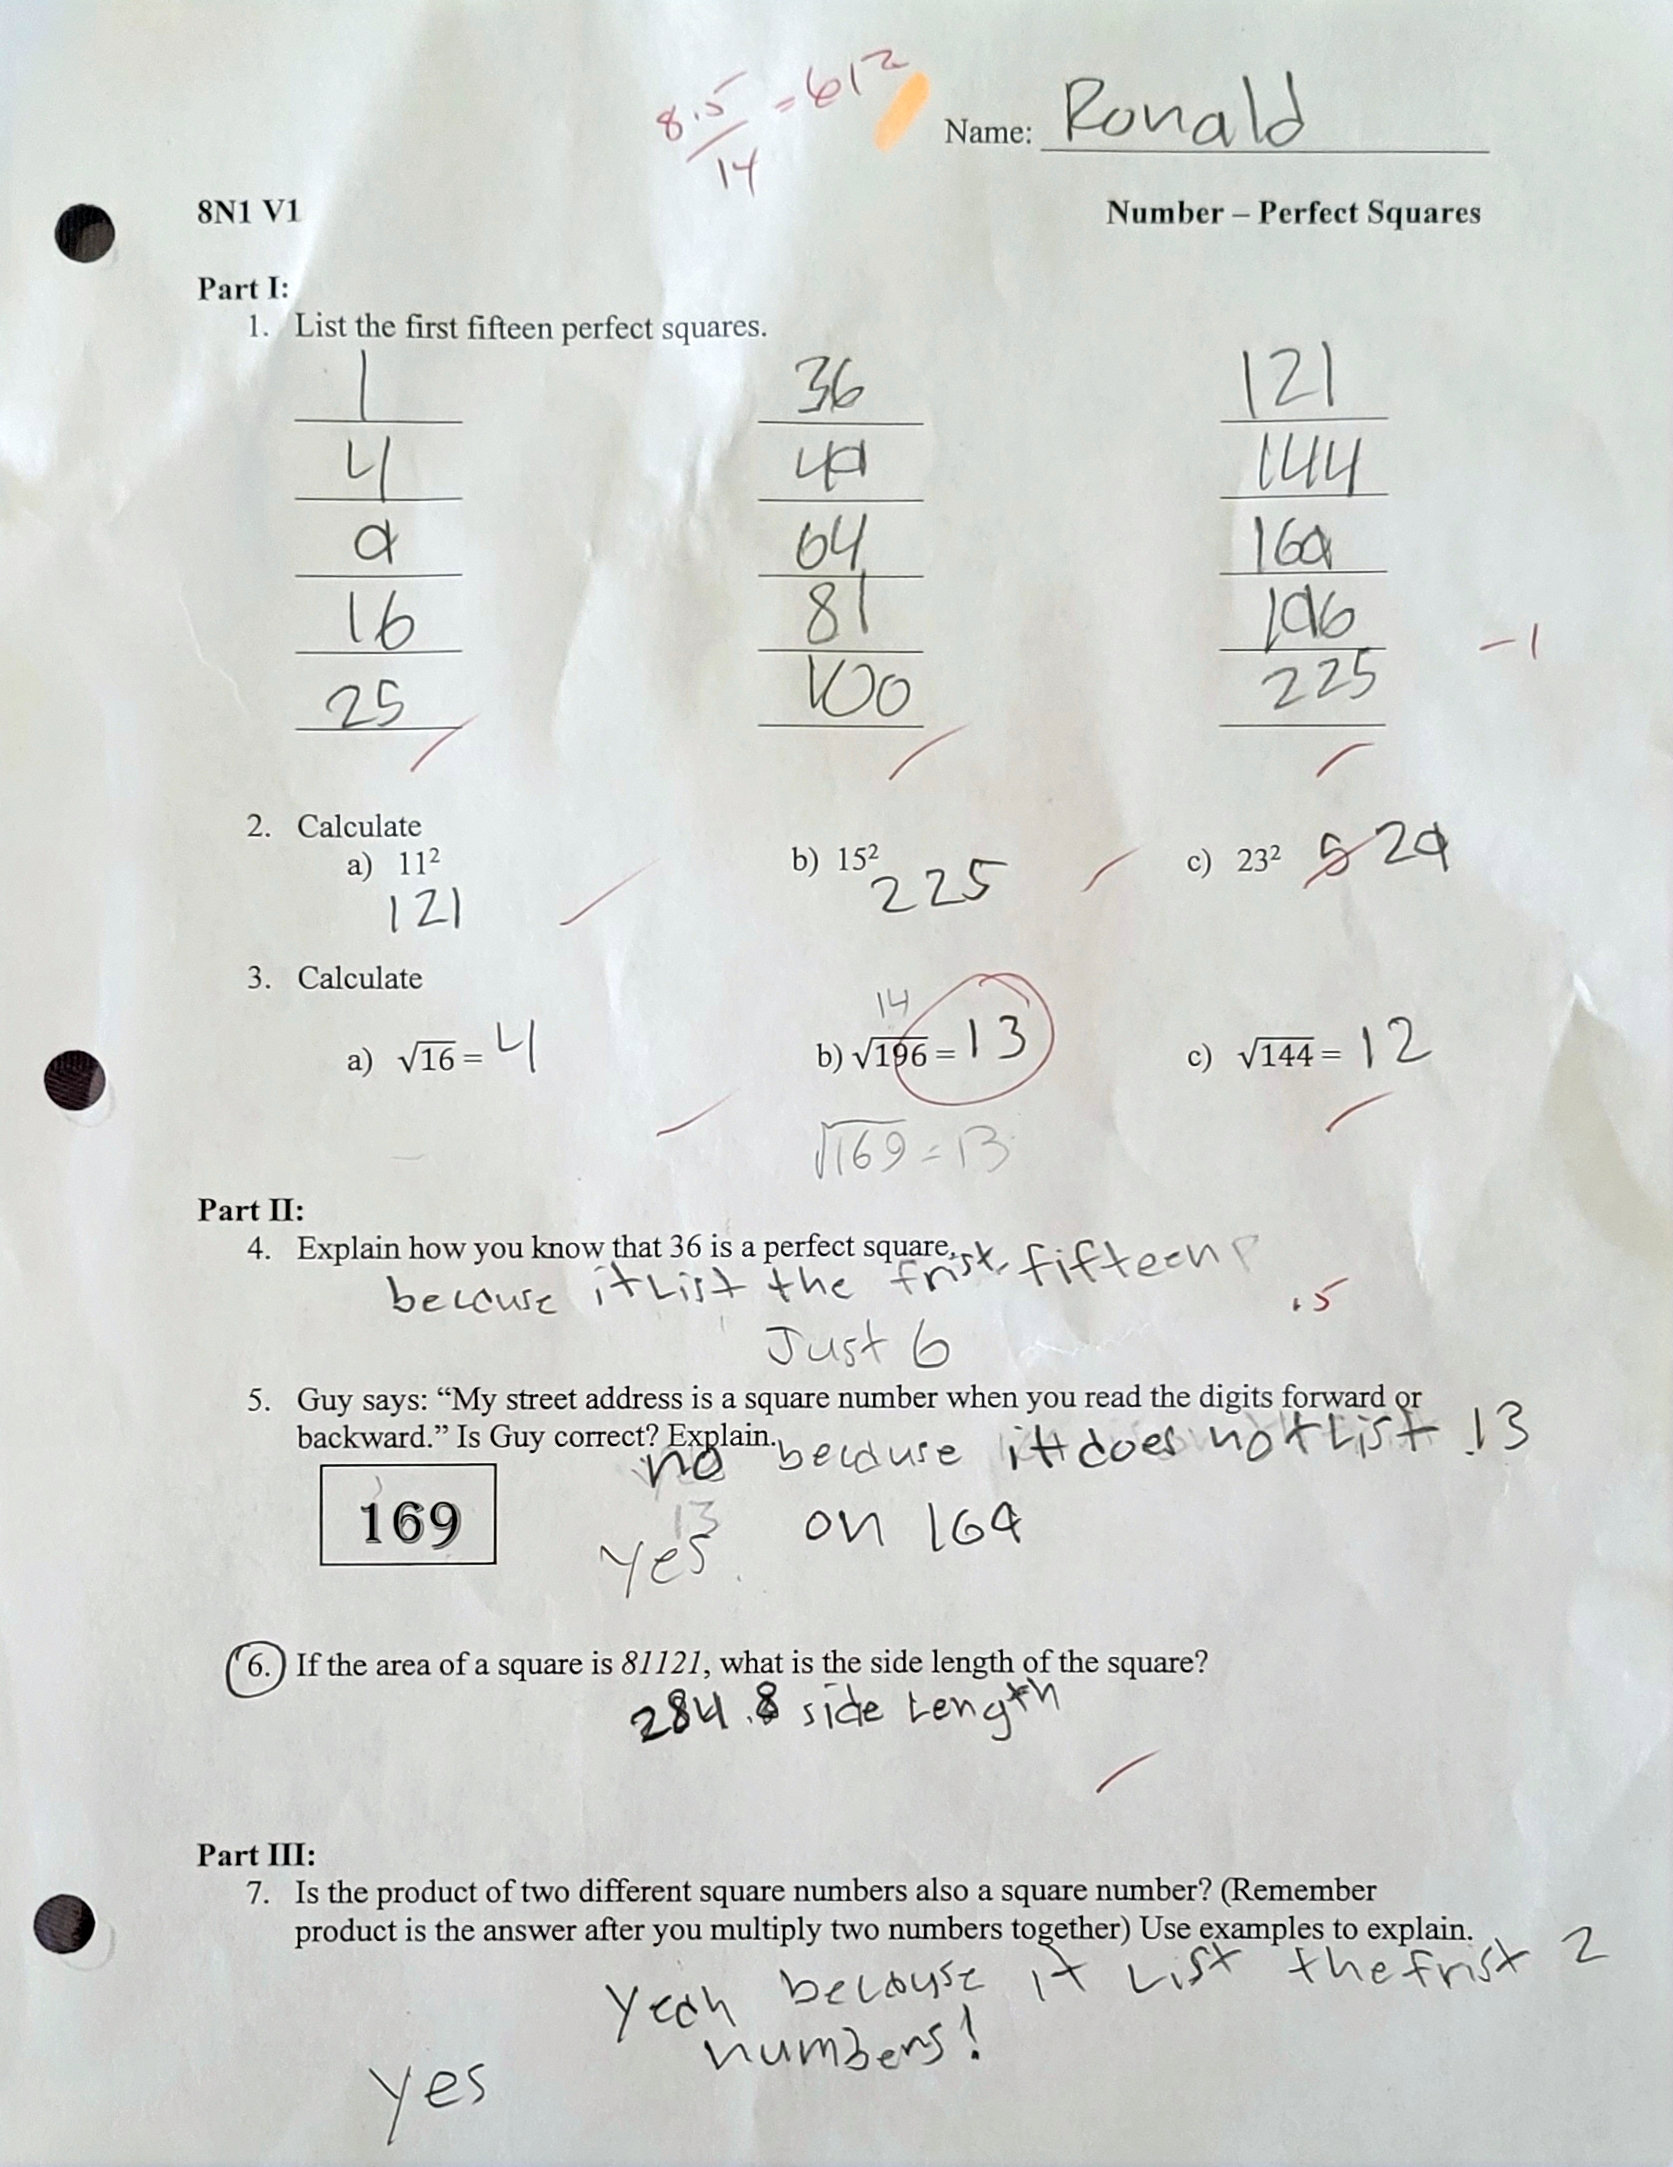 8.5/14 = 61²
Name: Ronald
8N1 V1 Number – Perfect Squares
Part I:
1. List the first fifteen perfect squares.
1 36 121
4 49 144
9 64 169
16 81 196 -1
25 100 225
2. Calculate
a) 11² b) 15² c) 23² 529
121 225
3. Calculate
14
a) √16 = 4 b) √196 = 13 c) √144 = 12
√169 = 13
Part II:
4. Explain how you know that 36 is a perfect square.
because it List the frist fifteen P
.5
Just 6
5. Guy says: “My street address is a square number when you read the digits forward or
backward.” Is Guy correct? Explain.
no because it does not List 13
169 13 on 169
yes.
6. If the area of a square is 81121, what is the side length of the square?
284.8 side Length
Part III:
7. Is the product of two different square numbers also a square number? (Remember
product is the answer after you multiply two numbers together) Use examples to explain.
Yeah because it List the frist 2
numbers!
yes